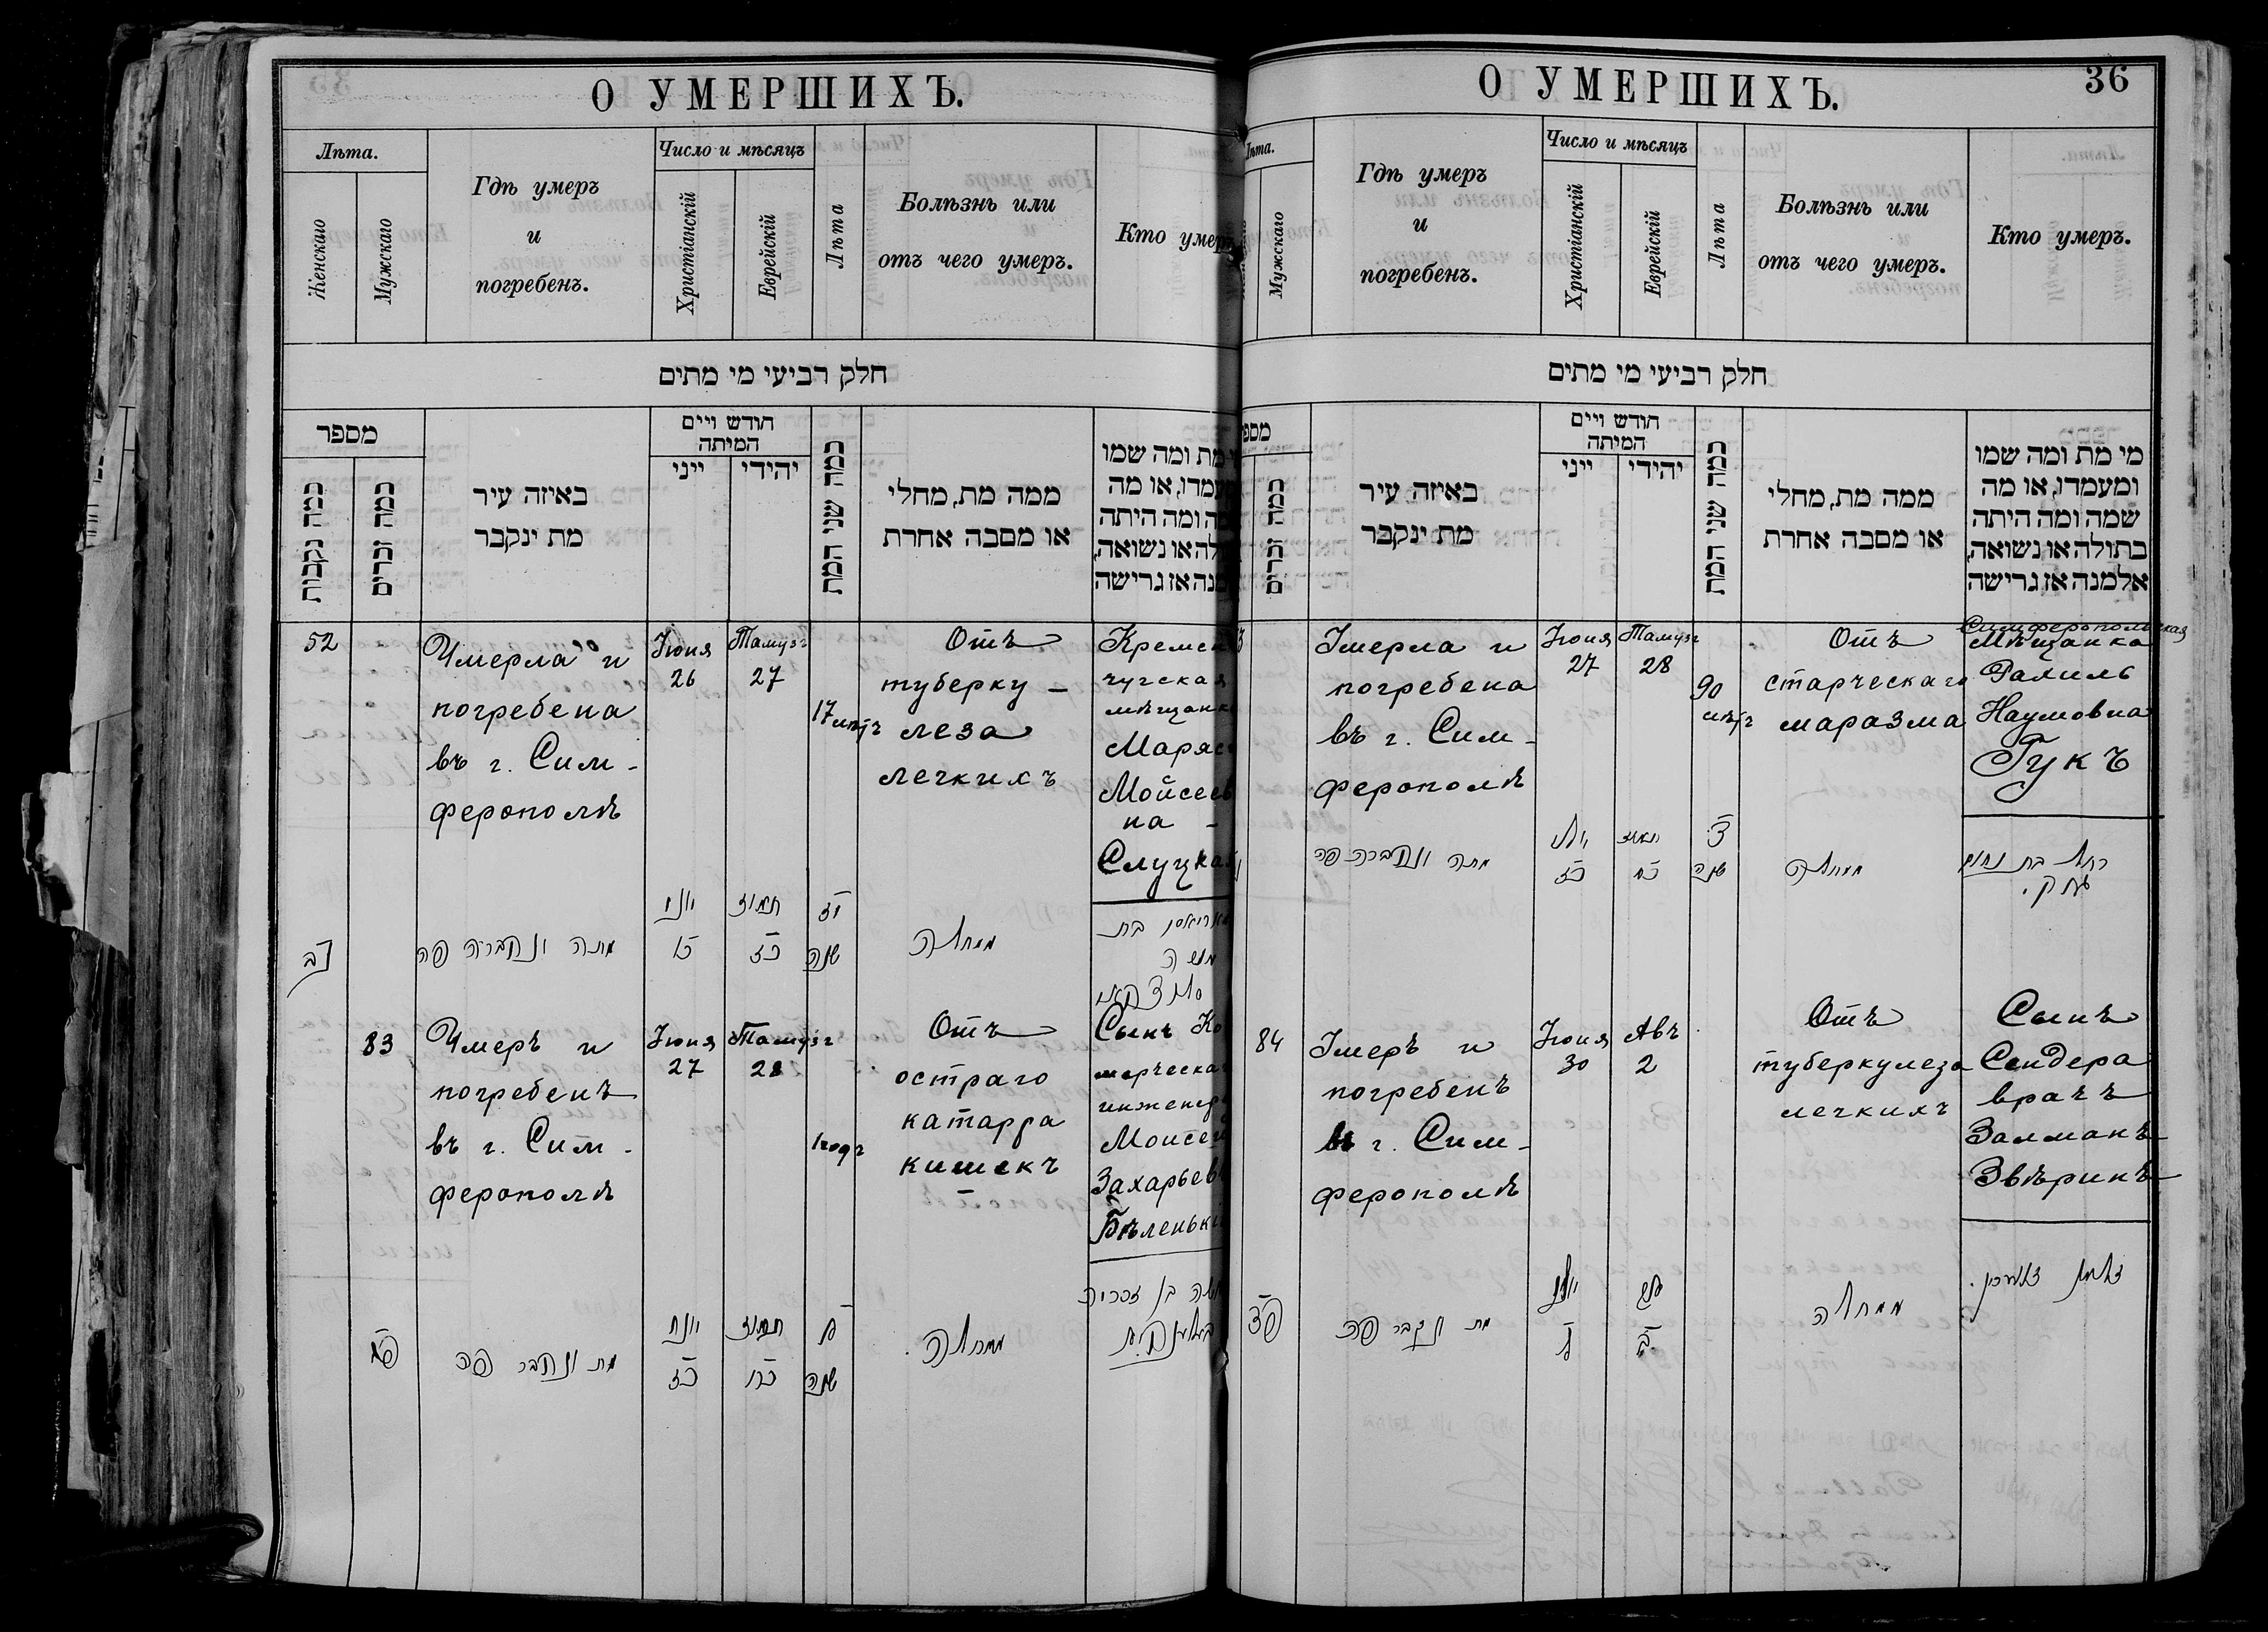 О УМЕРШИХЪ.
Лѣта.
Женскаго
Мужскаго
Гдѣ умеръ
и
погребенъ.
Число и мѣсяцъ
Христіанскій
Еврейскій
Лѣта
Болѣзнь или
отъ чего умеръ.
Кто умеръ
חלק רביעי מי מתים
מספר
כמה נקבות
כמה זכרים
באיזה עיר
מת ינקבר
חודש ויים
המיתה
ייני
יהידי
כמה שני המת
ממה מת, מחלי
או מסבה אחרת
מת ומה שמו
עמדו, או מה
ה ומה היתה
לה או נשואה,
מנה אז גרישה
52
Умерла и
погребена
въ г. Сим-
ферополѣ
Іюня
26
Тамузъ
27
17 лѣтъ
Отъ
туберку-
леза
легкихъ
Кремен
чугская
мѣщанк
Маряс
Мойсеев
на -
Слуцкая
נב
מתה ונקברה פה
יוני
כו
תמוז
כז
יז
שנה
ממחלה
בת
משה
83
Умеръ и
погребенъ
въ г. Сим-
ферополѣ
Іюня
27
Тамузъ
28
1 годъ
Отъ
остраго
катарра
кишекъ
Сынъ Ко
мерческа
инженер
Моисея
Захарьев
Бѣленькі
מת ונקבר פה
כז
תמוז
כח
א
שנה
ממחלה
משה בן זכריה
О УМЕРШИХЪ.
36
Лѣта.
Мужскаго
Гдѣ умеръ
и
погребенъ.
Число и мѣсяцъ
Христіанскій
Еврейскій
Лѣта
Болѣзнь или
отъ чего умеръ.
Кто умеръ.
חלק רביעי מי מתים
מספ
כמה זכרים
באיזה עיר
מת ינקבר
חודש ויים
המיתה
ייני
יהידי
כמה שני המת
ממה מת, מחלי
או מסבה אחרת
מי מת ומה שמו
ומעמדו, או מה
שמה ומה היתה
בתולה או נשואה,
אלמנה אז גרישה
3
Умерла и
погребена
въ г. Сим-
ферополѣ
Іюня
27
Тамузъ
28
90
лѣтъ
Отъ
старческаго
маразма
Симферопольская
Мѣщанка
Рахиль
Наумовна
Гукъ
מתה ונקברה פה
כז
תמוז
כח
צ
שנה
ממחלה
רחל בת נחום
84
Умеръ и
погребенъ
въ г. Сим-
ферополѣ
Іюня
30
Авъ
2
Отъ
туберкулеза
легкихъ
Сынъ
Сендера
врачъ
Залманъ
Звѣринъ
פד
מת ונקבר פה
יוני
ל
ב
ממחלה
זלמן